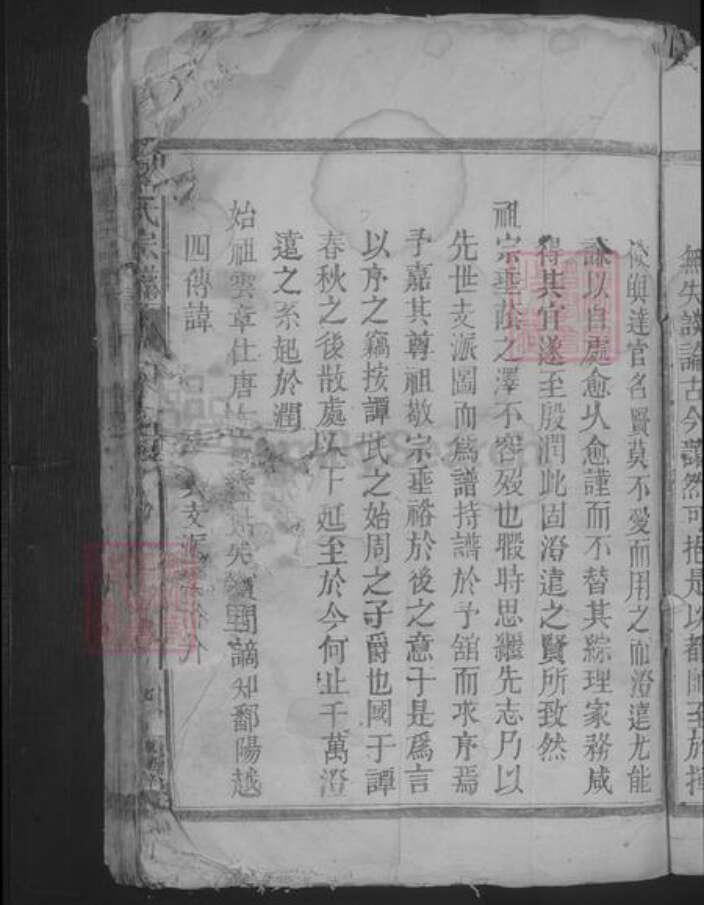 無失談論古今藹然可挹是以都
達官名賢莫不愛而用之而澄遠尤能
謙以自處愈久愈謹而不替其綜理家務咸
得其宜遂至殷潤此固澄遠之賢所致然
祖宗垂蔭之澤不容歿也暇時思繼先志乃以
先世支派圖而為譜持譜於予舘而求序焉
予嘉其尊祖敬宗垂裕於後之意于是為言
以序之竊按譚氏之始周之子爵也國于譚
春秋之後散處以十延至於今何止千萬澄
遠之系起於潤
始祖雲章仕唐
謫知鄱陽越
四傳諱
氏宗譜